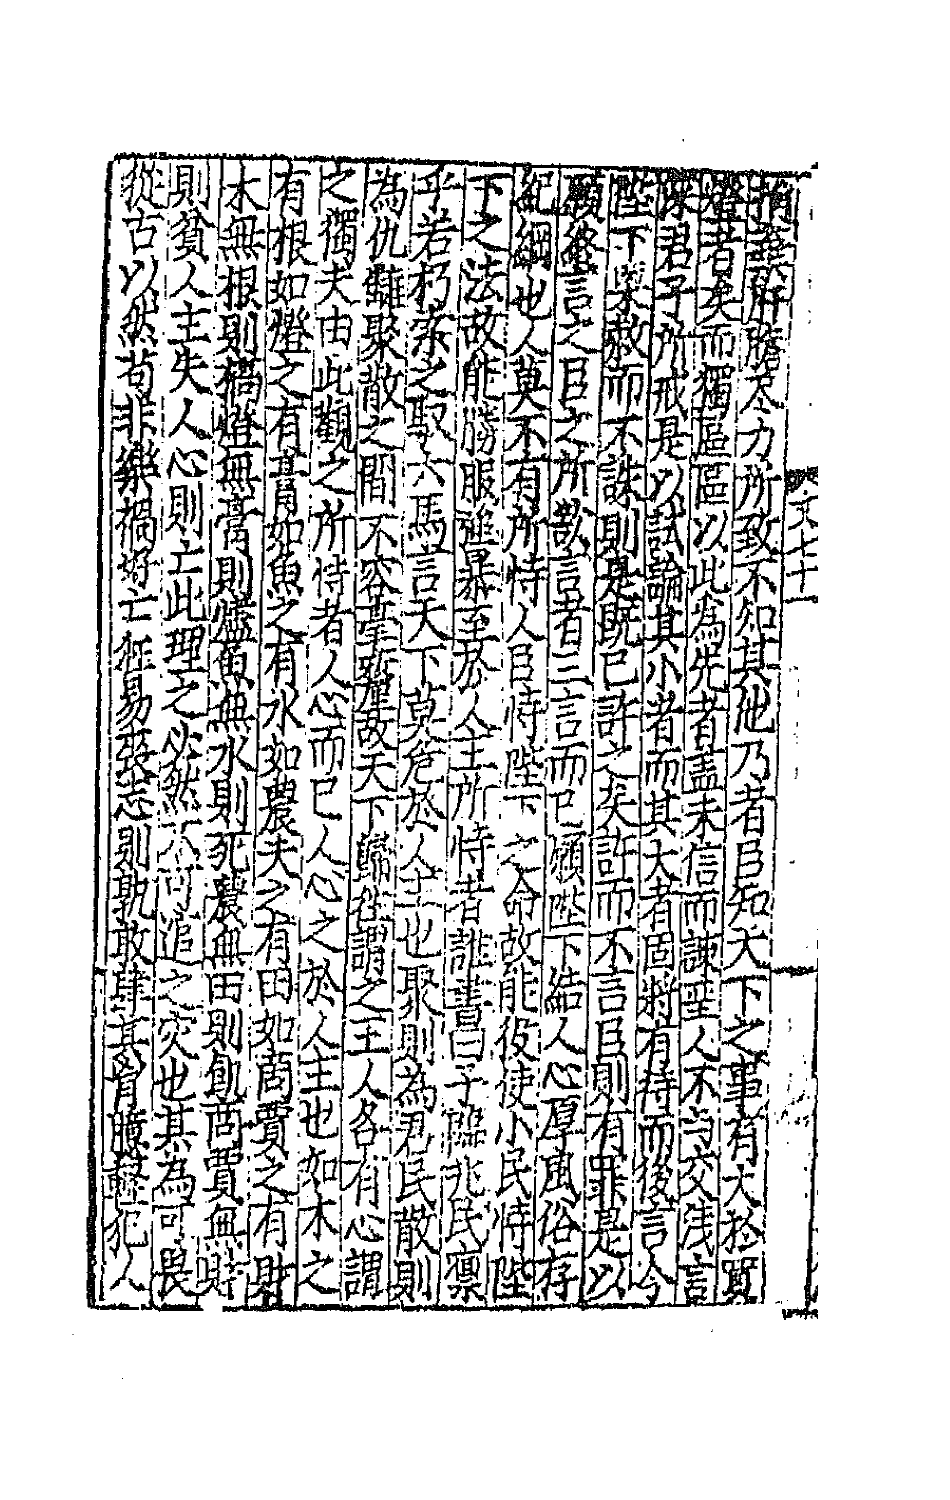 捐棄肝膽尽力所致不知其他乃者臣知天下之事有大於買
燈者矣而獨區區以此為先者盖未信而諫聖人不与交浅言
深君子所戒是以試論其小者而其大者固將有待而後言今
陛下果赦而不誅則是既已許之矣許而不言臣則有罪是以
願終言之臣之所欲言者三言而已願陛下結人心厚風俗存
紀綱也人莫不有所恃人臣恃陛下之命故能役使小民恃陛
下之法故能勝服強暴至於人主所恃者誰書曰予臨兆民凛
乎若朽索之馭六馬言天下莫危於人主也聚則為君民散則
為仇讎聚散之間不容毫釐故天下歸往謂之王人各有心謂
之獨夫由此觀之所恃者人心而已人心之於人主也如木之
有根如燈之有膏如魚之有水如農夫之有田如商賈之有財
木無根則槁燈無膏則燼魚無水則死農無田則飢商賈無財
則貧人主失人心則亡此理之必然不可追之灾也其為可畏
從古以然苟非樂禍好亡狂易喪志則孰敢肆其胷臆輕犯人
文七十一